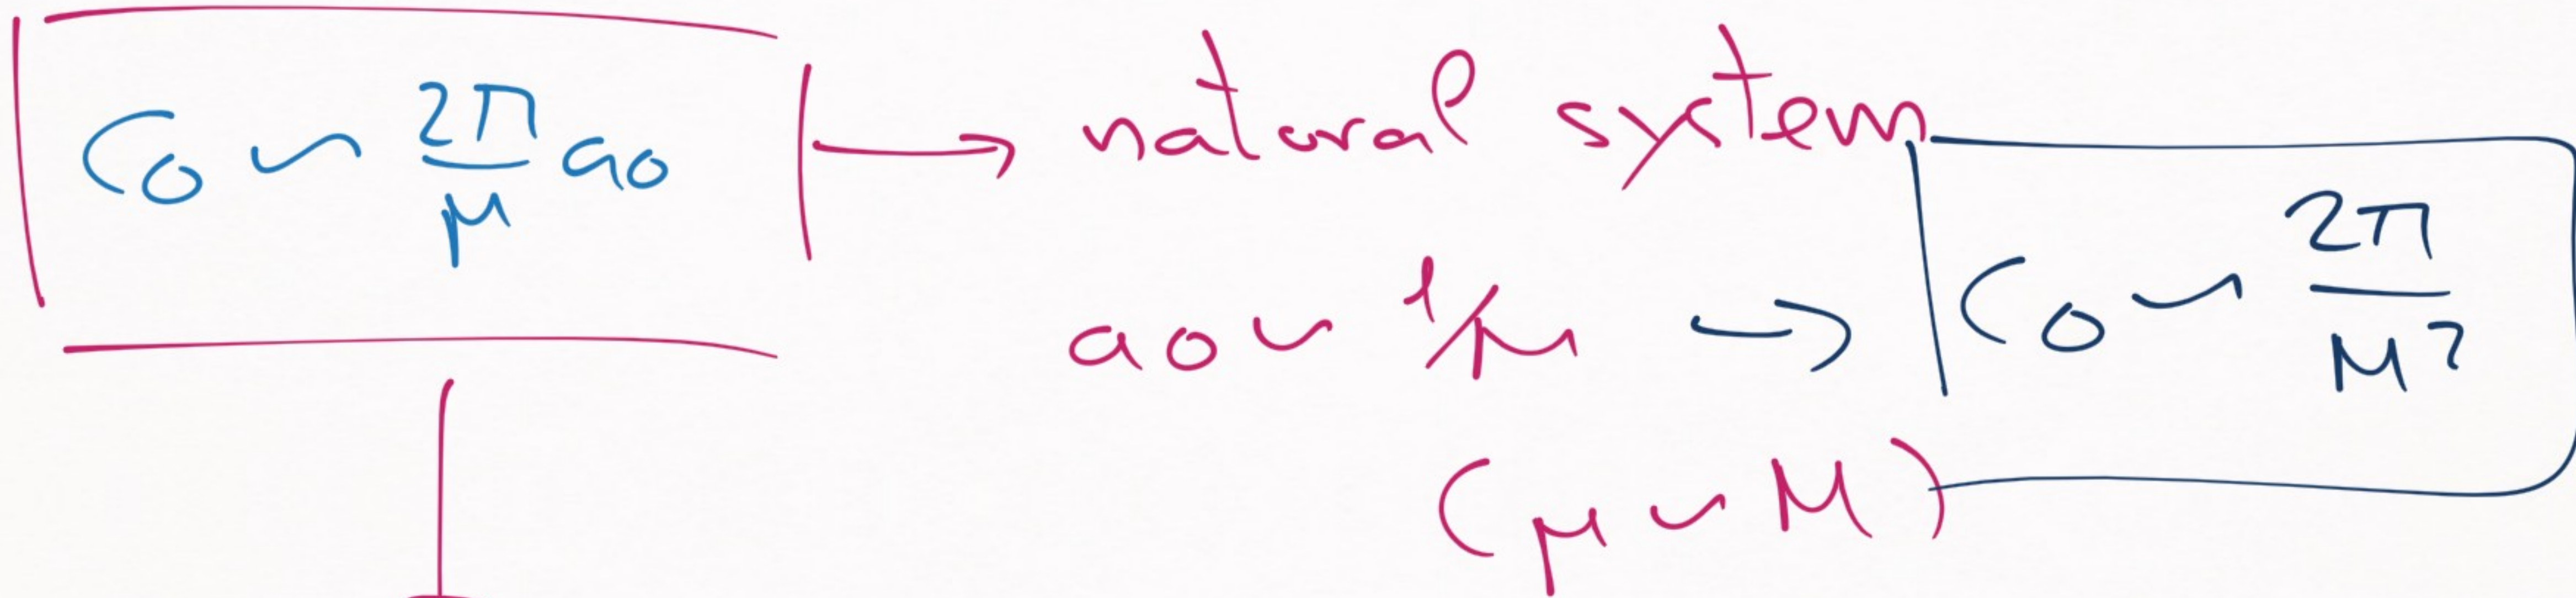 C₀ ~ 2π/μ a₀ → natural system
a₀ ~ 1/μ → C₀ ~ 2π/M²
(μ ~ M)